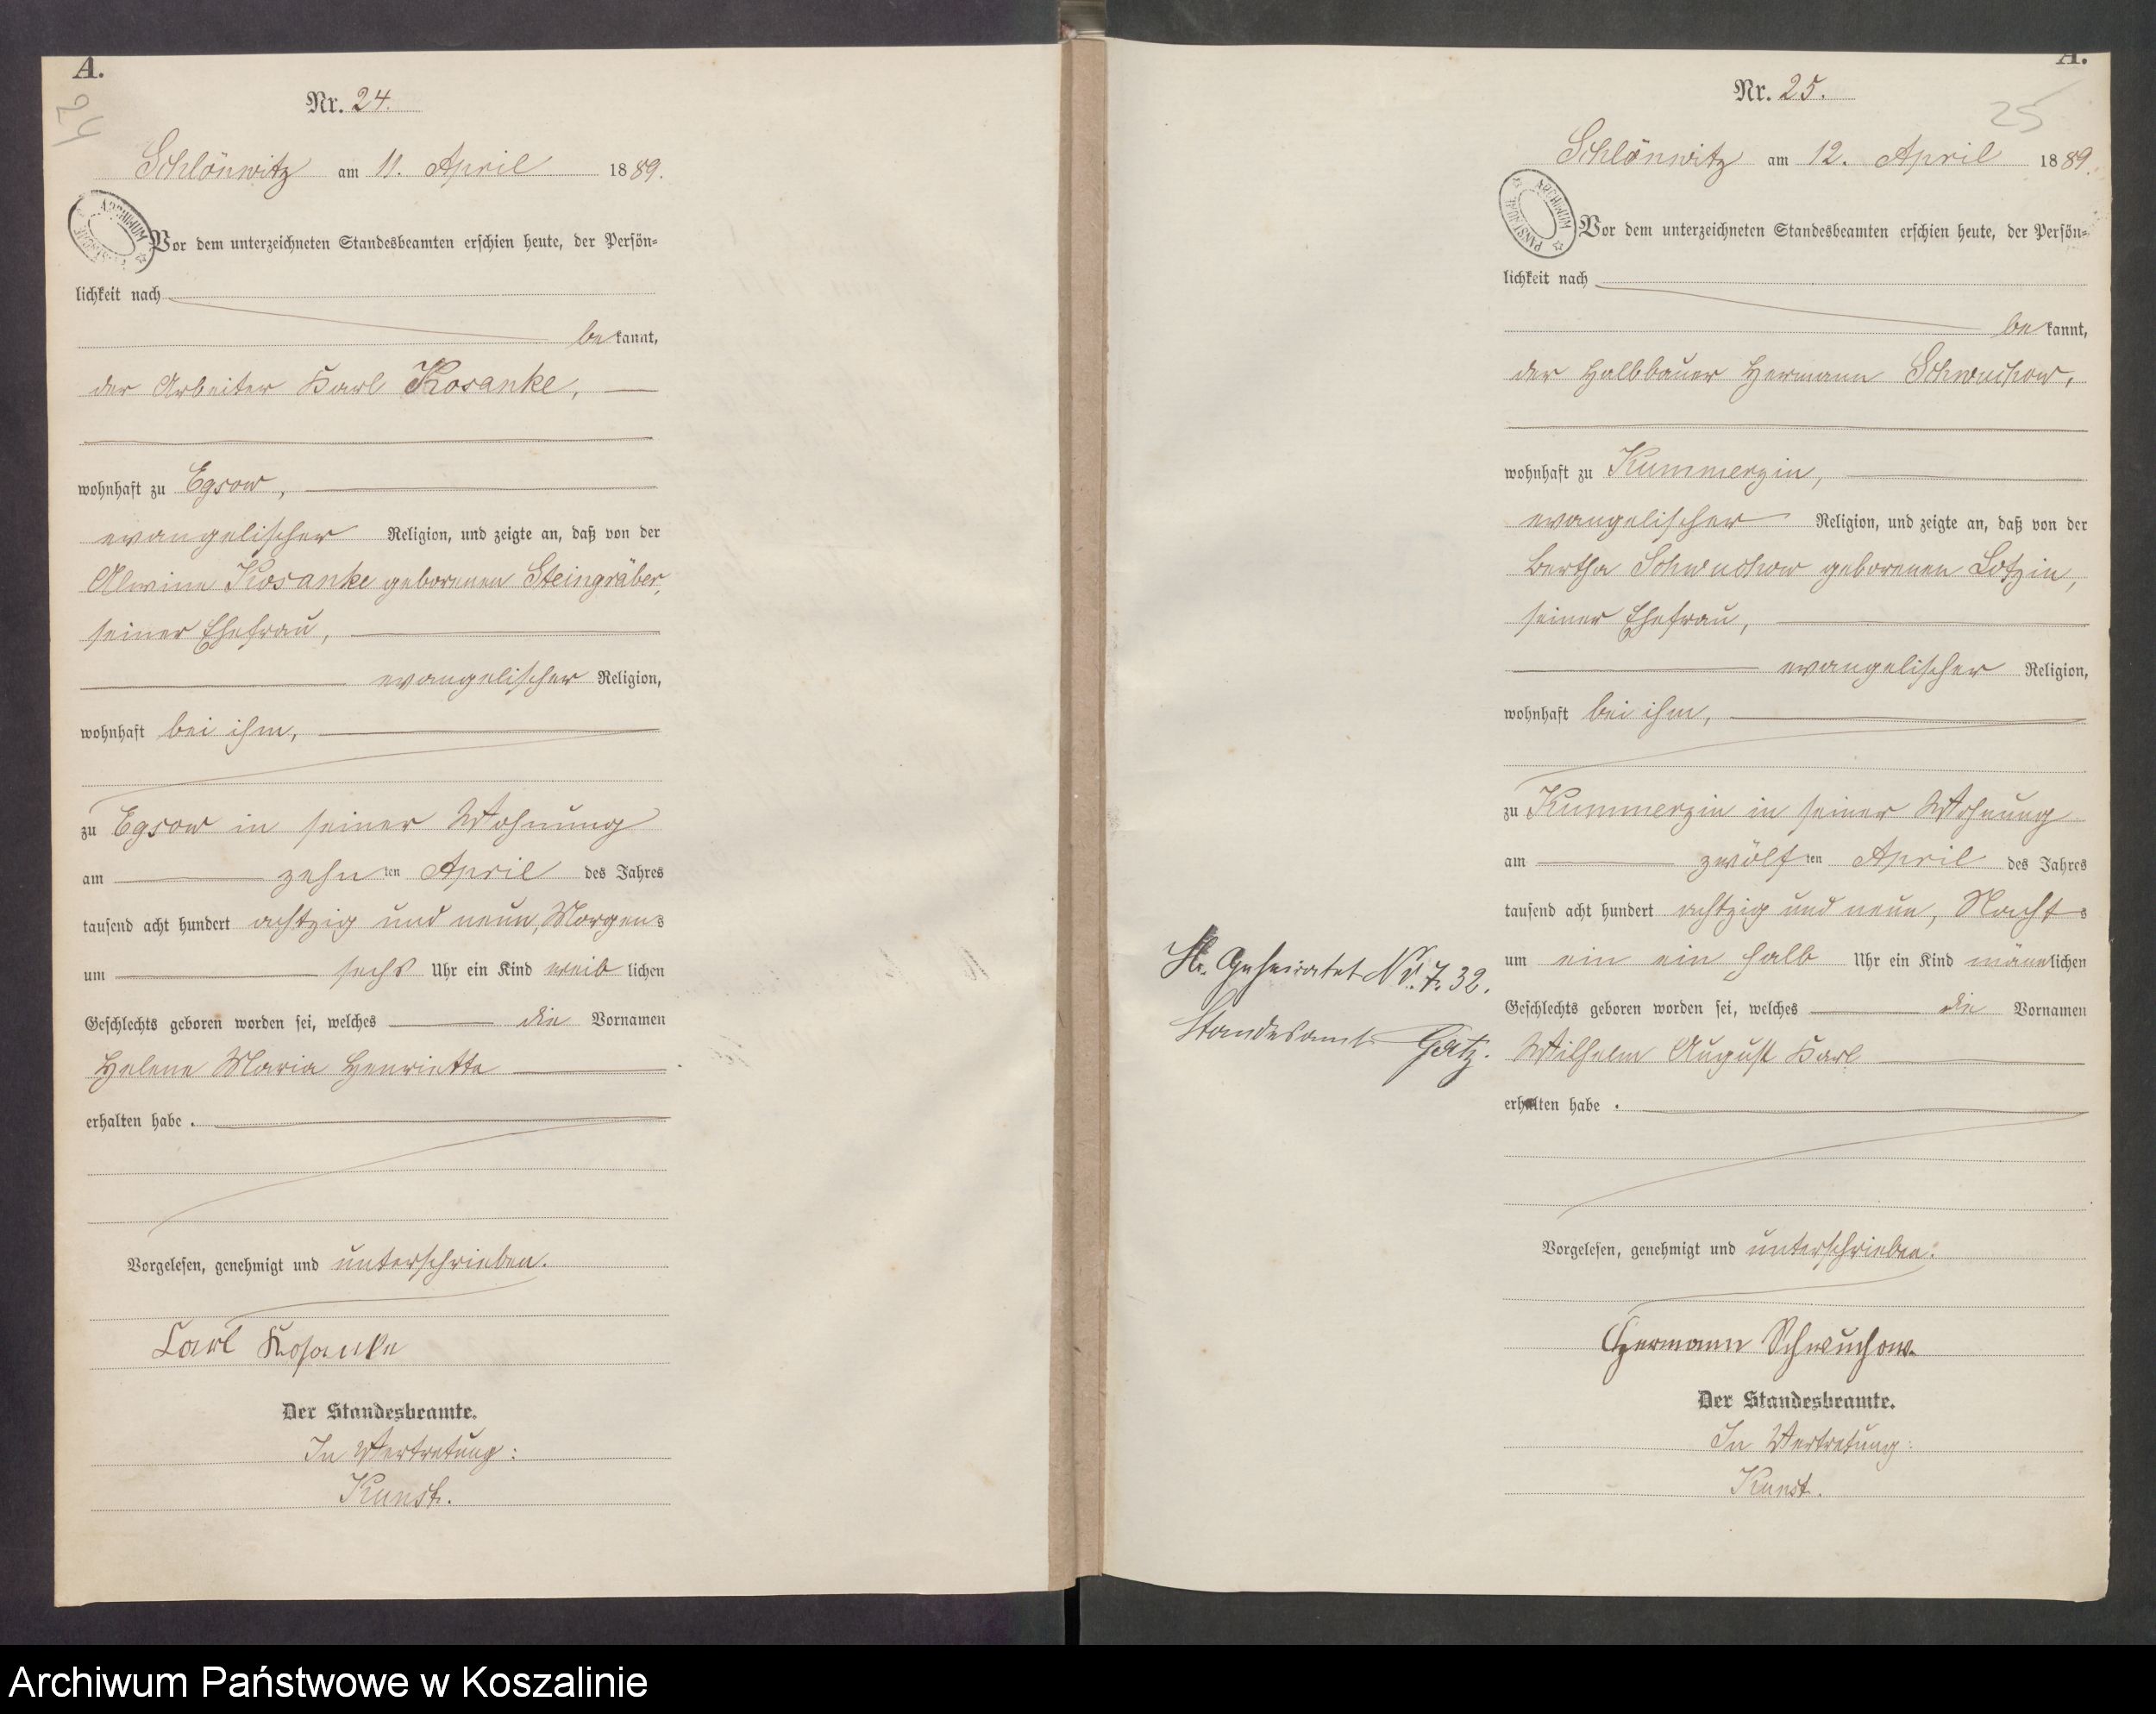 A.
24
Nr. 24.
Schlönwitz am 11. April 1889.
ARCHIWUM
Vor dem unterzeichneten Standesbeamten erschien heute, der Persön=
lichkeit nach
bekannt,
der Arbeiter Karl Kosanke,
wohnhaft zu Egsow,
evangelischer Religion, und zeigte an, daß von der
Alwine Kosanke geborenen Steingräber,
seiner Ehefrau,
evangelischer Religion,
wohnhaft bei ihm,
zu Egsow in seiner Wohnung
am zehnten April des Jahres
tausend acht hundert achtzig und neun, Morgens
um sechs Uhr ein Kind weiblichen
Geschlechts geboren worden sei, welches die Vornamen
Helene Maria Henriette
erhalten habe.
Vorgelesen, genehmigt und unterschrieben.
Carl Kosanke
Der Standesbeamte.
In Vertretung:
Kunst.
A.
25
Nr. 25.
Schlönwitz am 12. April 1889.
ARCHIWUM
Vor dem unterzeichneten Standesbeamten erschien heute, der Persön=
lichkeit nach
bekannt,
der Halbbauer Hermann Schwuchow,
wohnhaft zu Kummerzin,
evangelischer Religion, und zeigte an, daß von der
Bertha Schwuchow geborenen Lotzin,
seiner Ehefrau,
evangelischer Religion,
wohnhaft bei ihm,
zu Kummerzin in seiner Wohnung
am zwölften April des Jahres
tausend acht hundert achtzig und neun, Nachts
um ein ein halb Uhr ein Kind männlichen
Geschlechts geboren worden sei, welches die Vornamen
Wilhelm August Karl
erhalten habe.
Geheiratet Nr. 7. 32.
Standesamt Gatz.
Vorgelesen, genehmigt und unterschrieben.
Hermann Schwuchow.
Der Standesbeamte.
In Vertretung:
Kunst.
Archiwum Państwowe w Koszalinie